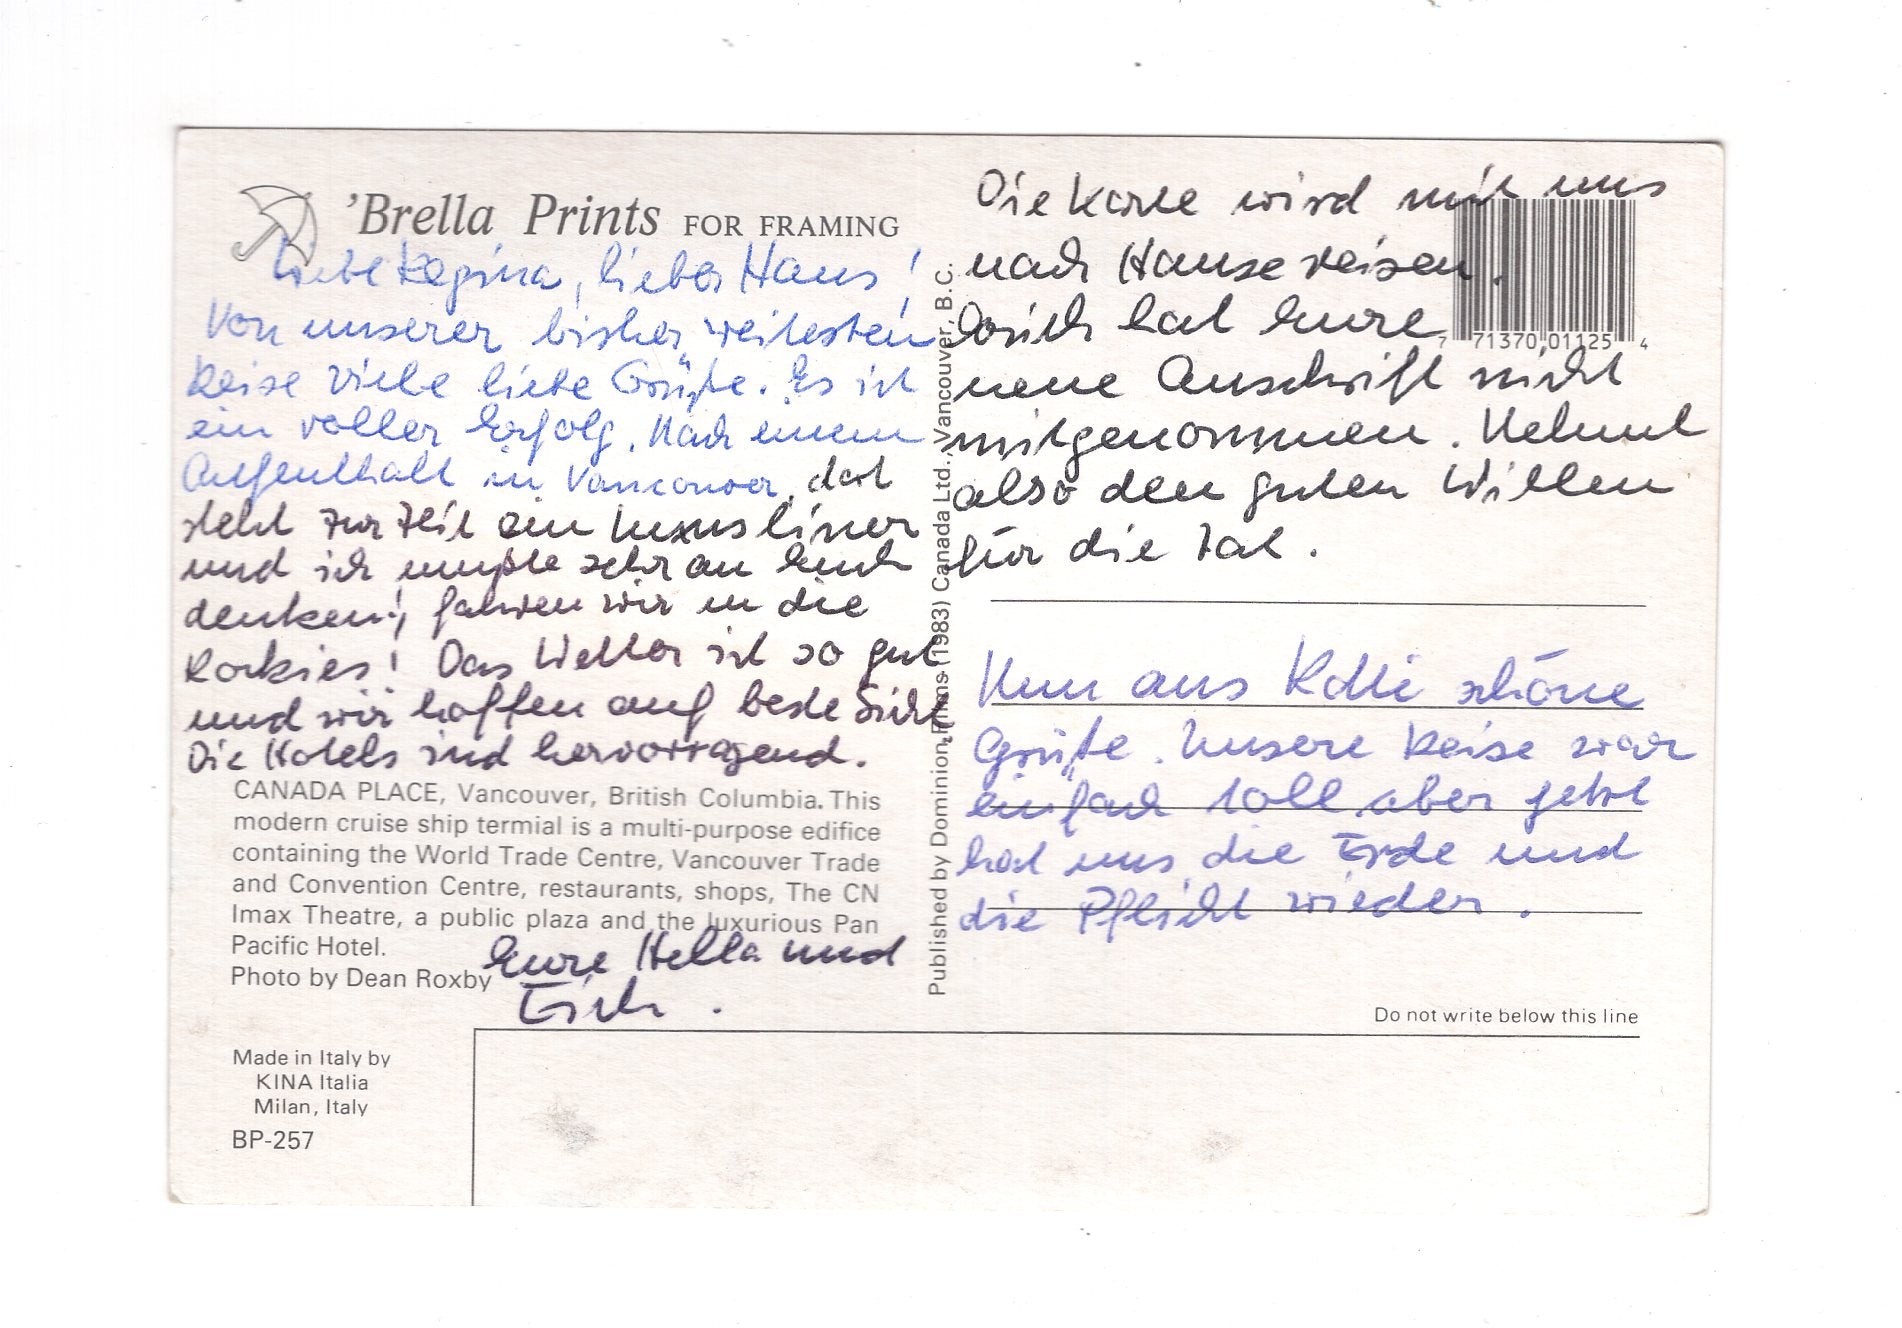 'Brella Prints FOR FRAMING
Liebe Regina, lieber Hans!
Von unserer bisher weitesten
Reise viele liebe Grüße. Es ist
ein voller Erfolg. Nach einem
Aufenthalt in Vancouver, dort
steht zur Zeit ein Luxusliner
und ich mußte sehr an Euch
denken!, fahren wir in die
Rockies! Das Wetter ist so gut
und wir hoffen auf beste Sicht
Die Hotels sind hervorragend.
CANADA PLACE, Vancouver, British Columbia. This
modern cruise ship termial is a multi-purpose edifice
containing the World Trade Centre, Vancouver Trade
and Convention Centre, restaurants, shops, The CN
Imax Theatre, a public plaza and the luxurious Pan
Pacific Hotel.
Photo by Dean Roxby
Eure Hella und
Erich.
Made in Italy by
KINA Italia
Milan, Italy
BP-257
Published by Dominion Films (1983) Canada Ltd., Vancouver, B.C.
Die Karte wird mit uns
nach Hause reisen.
Erich hat Eure
neue Anschrift nicht
mitgenommen. Nehmt
also den guten Willen
für die Tat.
7 71370 01125 4
Nun aus schöne
Grüße. Unsere Reise war
einfach toll, aber jetzt
hat uns die Erde und
die Pflicht wieder.
Do not write below this line